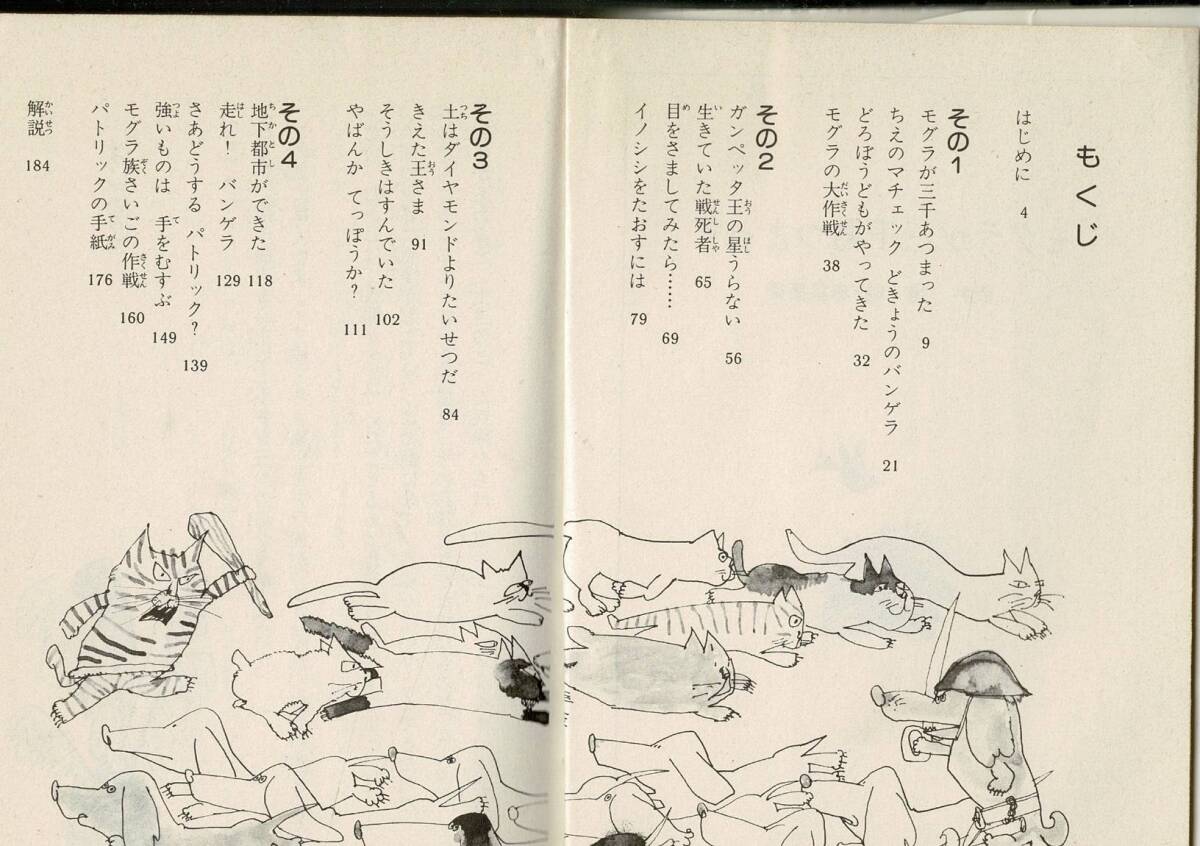 もくじ
はじめに 4
その1
モグラが三千あつまった 9
ちえのマチェック どきょうのバンゲラ 21
どろぼうどもがやってきた 32
モグラの大作戦 38
その2
ガンペッタ王の星うらない 56
生きていた戦死者 65
目をさましてみたら…… 69
イノシシをたおすには 79
その3
土はダイヤモンドよりたいせつだ 84
きえた王さま 91
そうしきはすんでいた 102
やばんか てっぽうか? 111
その4
地下都市ができた 118
走れ! バンゲラ 129
さあどうする パトリック? 139
強いものは 手をむすぶ 149
モグラ族さいごの作戦 160
パトリックの手紙 176
解説 184